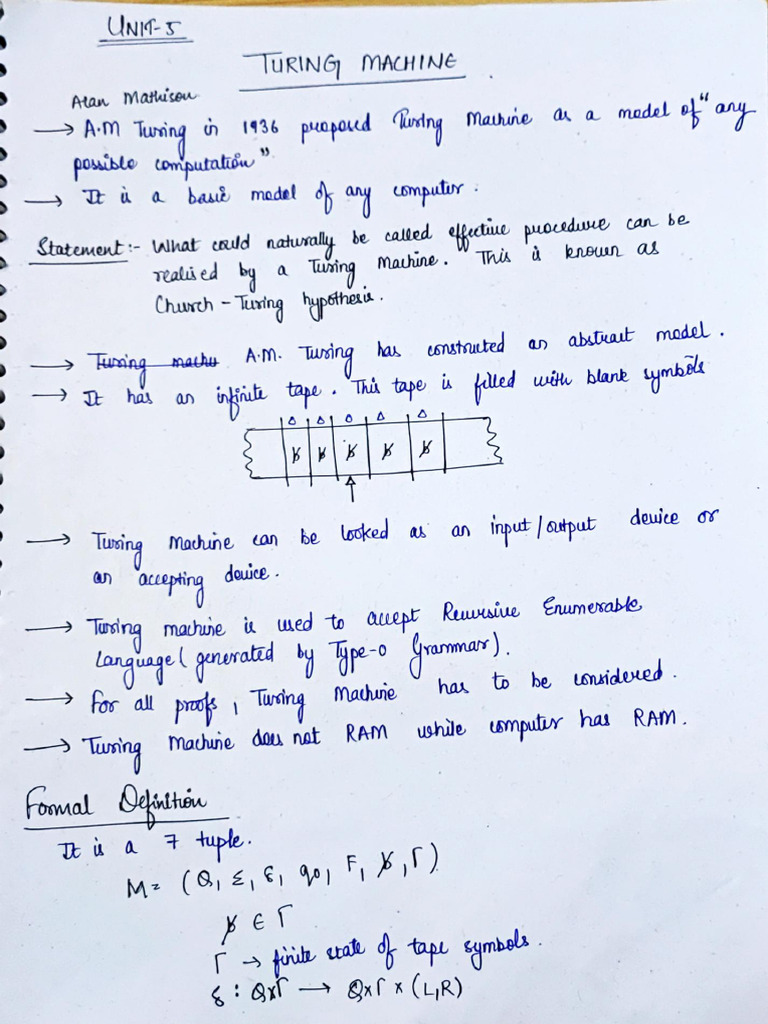 UNIT-5
TURING MACHINE
Alan Mathison
→ A.M Turing in 1936 proposed Turing Machine as a model of "any
possible computation"
→ It is a basic model of any computer.
Statement:- What could naturally be called effective procedure can be
realised by a Turing Machine. "This is known as
Church - Turing hypothesis.
→ Turing machi A.M. Turing has constructed an abstract model.
→ It has an infinite tape. This tape is filled with blank symbols
Δ Δ Δ Δ Δ
ƀ ƀ ƀ ƀ ƀ
→ Turing Machine can be looked as an input/output device or
an accepting device.
→ Turing machine is used to accept Recursive Enumerable
Language (generated by Type-0 Grammar).
→ For all proofs, Turing Machine has to be considered.
→ Turing Machine does not RAM while computer has RAM.
Formal Definition
It is a 7 tuple.
M = (Q, Σ, δ, q0, F, ƀ, Γ)
ƀ ∈ Γ
Γ → finite state of tape symbols.
δ : Q×Γ → Q×Γ × (L,R)